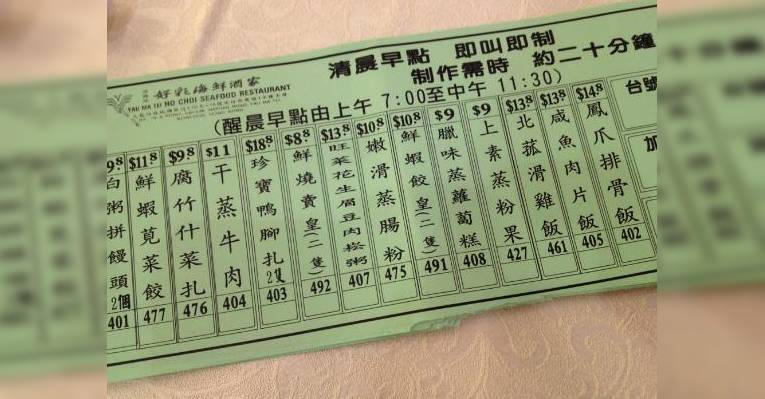 好彩海鮮酒家
YAU MA TEI HO CHOI SEAFOOD RESTAURANT
清晨早點 即叫即制
制作需時 約二十分鐘
(醒晨早點由上午 7:00至中午 11:30)
台號
加
$14.8 鳳爪排骨飯 402
$13.8 咸魚肉片飯 405
$13.8 北菰滑雞飯 461
$9 上素蒸粉果 427
$9 臘味蒸蘿蔔糕 408
$10.8 鮮蝦餃皇(二隻) 491
$10.8 嫩滑蒸腸粉 475
$13.8 旺菜花生眉豆肉崧粥 407
$8.8 鮮燒賣皇(二隻) 492
$18.8 珍寶鴨腳扎2隻 403
$11 干蒸牛肉 404
$9.8 腐竹什菜扎 476
$11.8 鮮蝦莧菜餃 477
9.8 白粥拼饅頭2個 401